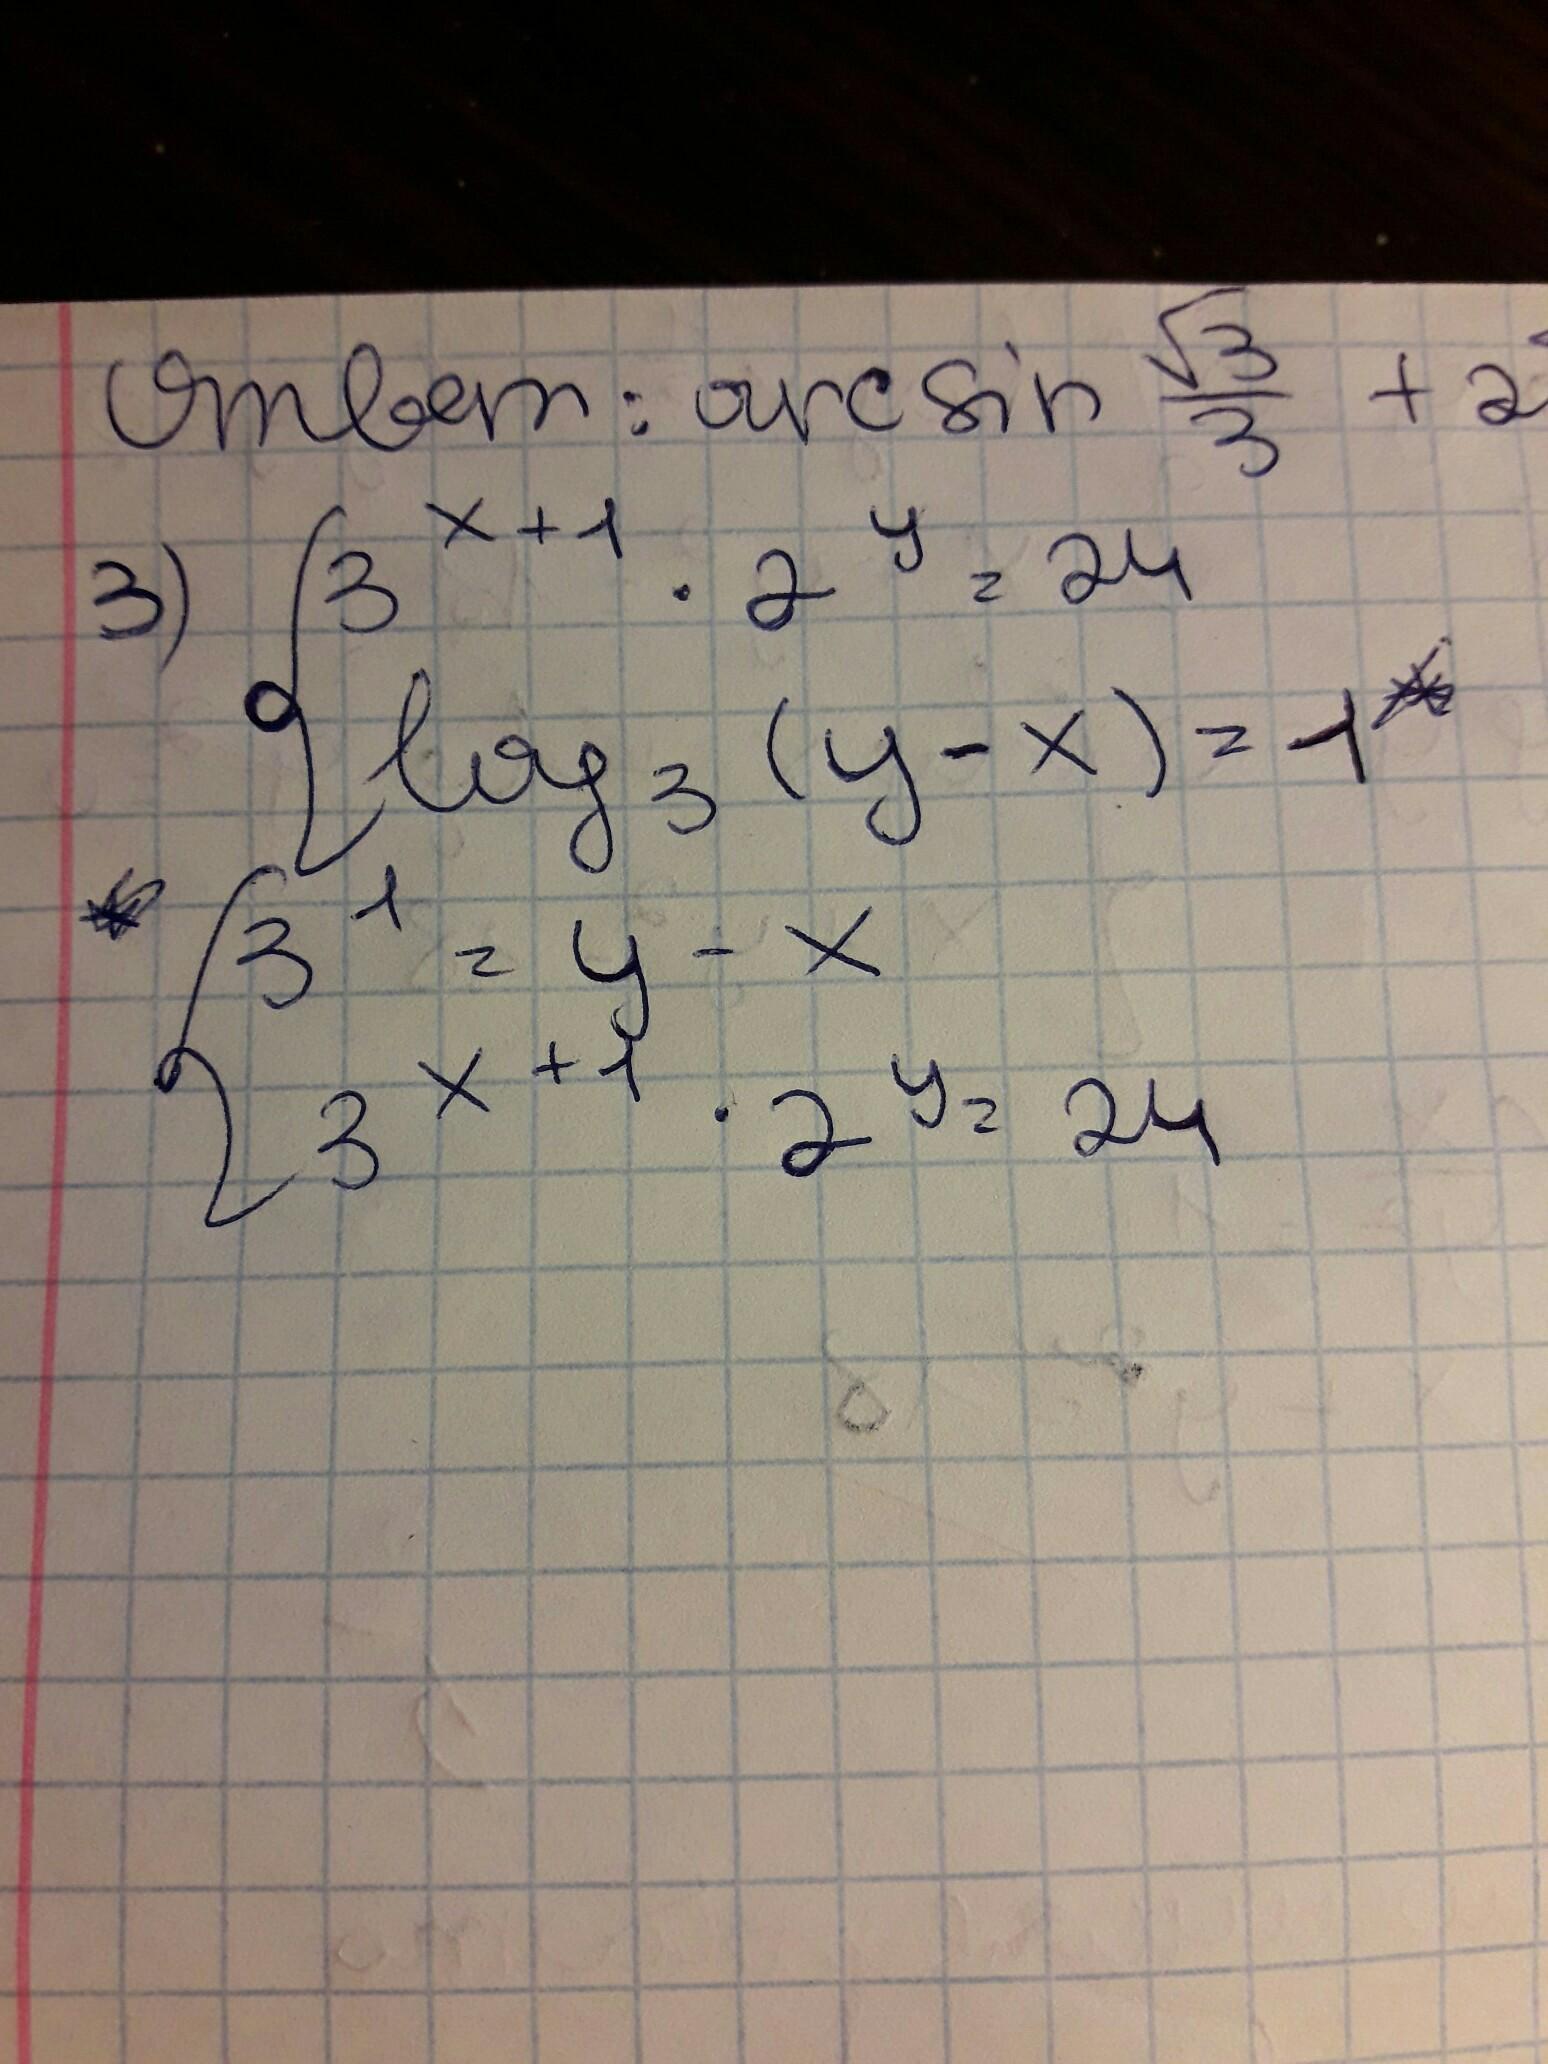 Ответ: arcsin √3/3 + 2
3) { 3^(x+1) · 2^y = 24
log₃ (y - x) = 1*
* { 3^1 = y - x
3^(x+1) · 2^y = 24